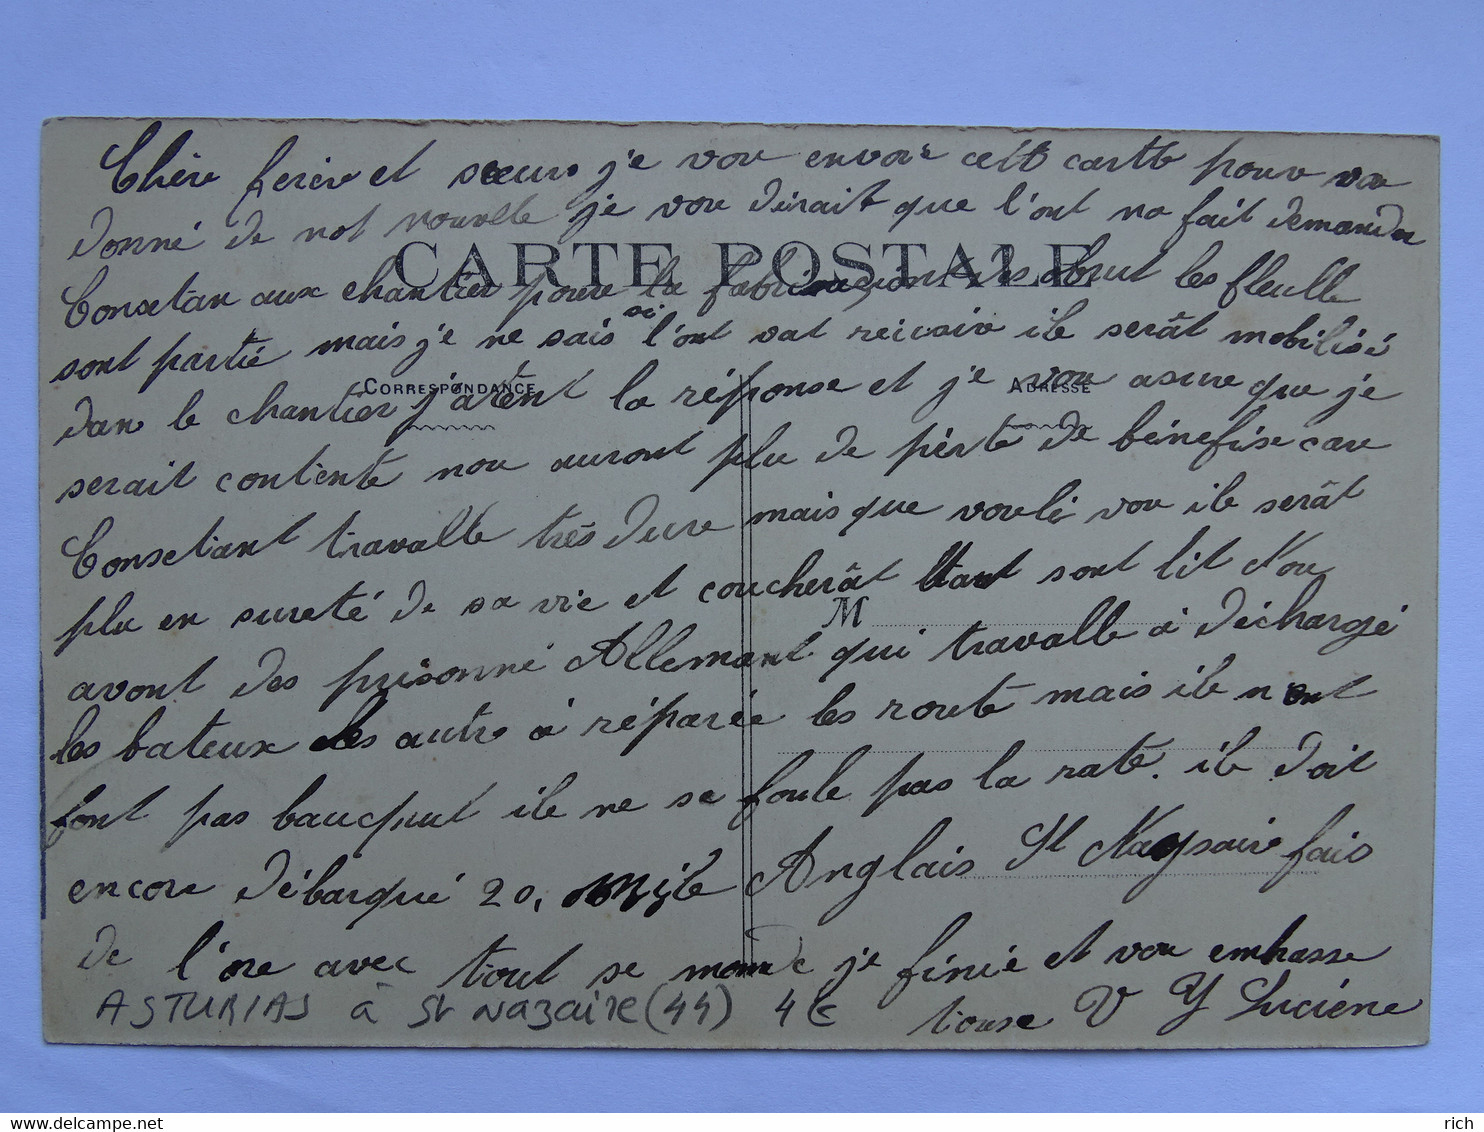 Chère ferère et sœurs je vou envoir cett cartte pour vou
donné de not nouvelle je vou dirait que l'ont na fait demander
CARTE POSTALE
Consctan aux chantier pour la fabrication des obut les fleulle
sont partie mais je ne sais si l'ont vat reicvoir ile serât mobilisé
CORRESPONDANCE
ADRESSE
dans le chantier j'atent la réponse et je vou asure que je
serait contente nou auront plu de perte de bénefise car
Consctiant travalle très dure mais que voulé vou ile serât
plu en sureté de sa vie et coucherât dant sont lit nou
M
avont des prisonné Allemant qui travalle à déchargé
les bateux des autre à réparée les route mais ile n ont
font pas baucput ile ne se foule pas la rate. ile doit
encore débarqué 20, mile Anglais St Naysaire fais
de l'ore avec tout se monde je finie et vou embrasse
touse V Y Luciéne
ASTURIAS à St Nazaire (44) 4€
www.delcampe.net
rich